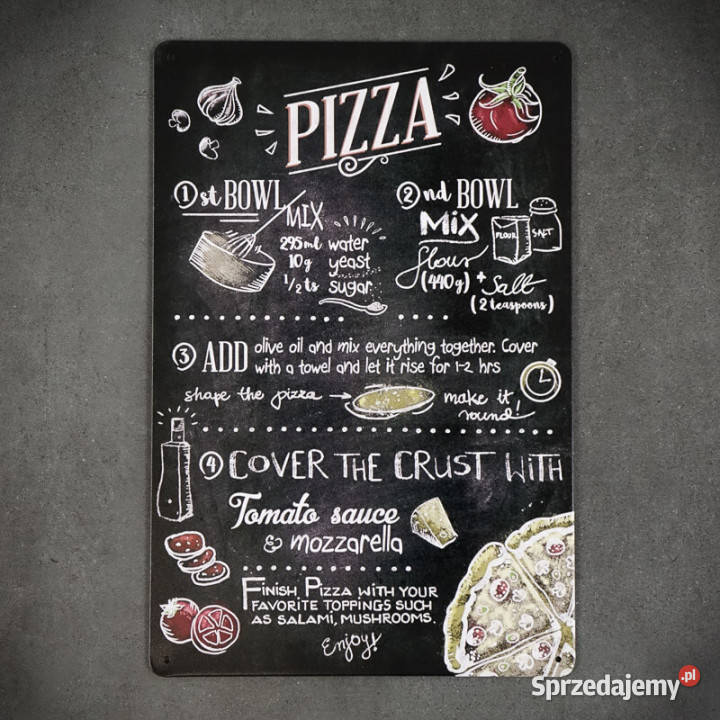 PIZZA
1st BOWL
MIX
295ml water
10g yeast
1/2 ts sugar
2nd BOWL
MIX
flour
(440g) + Salt
(2 teaspoons)
FLOUR
SALT
3 ADD olive oil and mix everything together. Cover
with a towel and let it rise for 1-2 hrs
shape the pizza → make it
round!
4 COVER THE CRUST WITH
Tomato sauce
& mozzarella
FINISH PIZZA WITH YOUR
FAVORITE TOPPINGS SUCH
AS SALAMI, MUSHROOMS.
Enjoy!
Sprzedajemy.pl